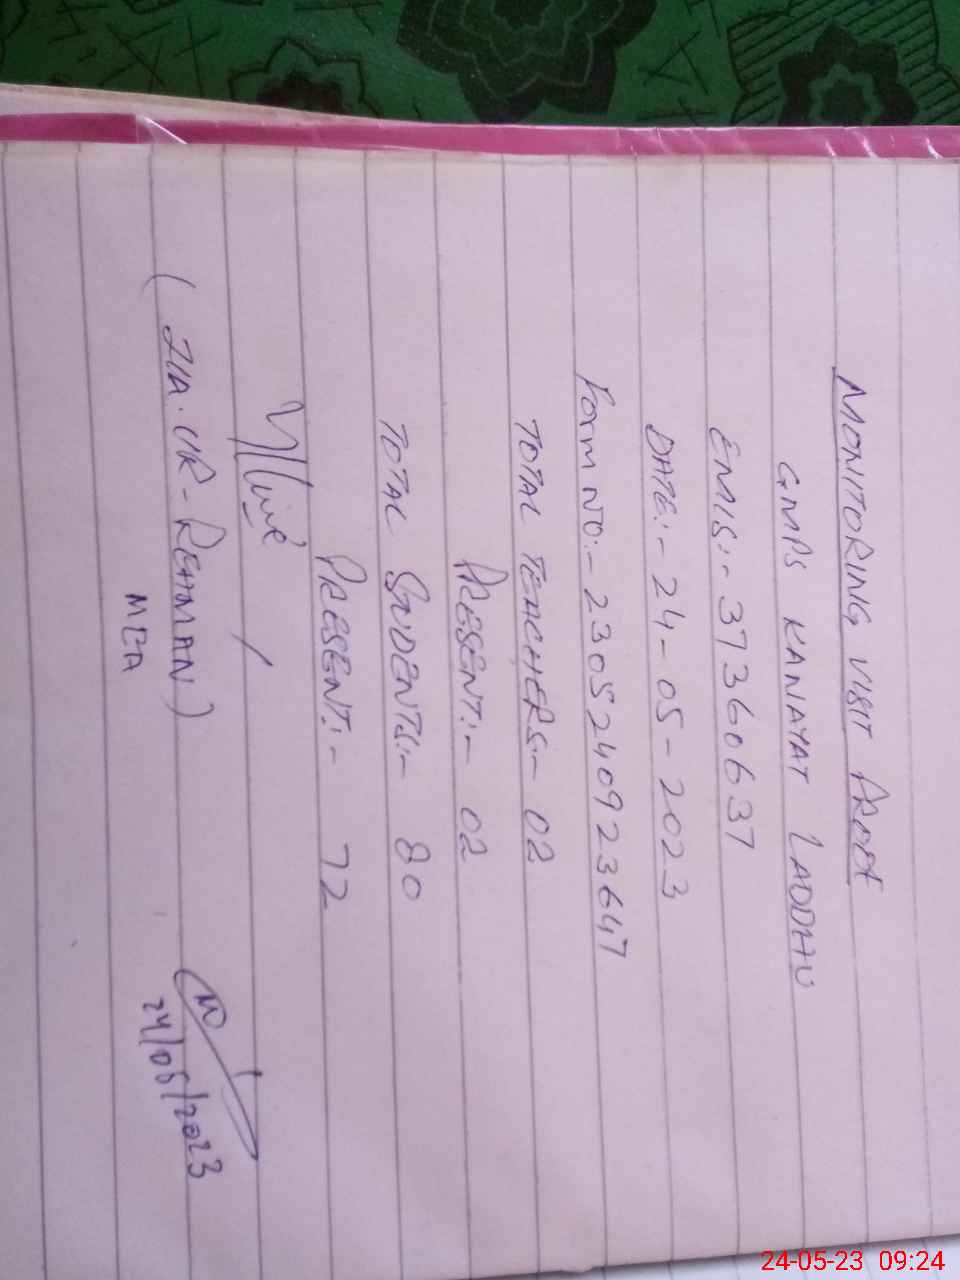 MONITORING VISIT PROOF
GMPS KANIAYAT LADDHU
EMIS:- 37360637
DATE:- 24-05-2023
Form NO:- 2305240923647
TOTAL TEACHERS:- 02
PRESENT:- 02
TOTAL STUDENTS:- 80
PRESENT:- 72
(ZIA-UR-REHMAN)
MEA
24/05/2023
24-05-23 09:24